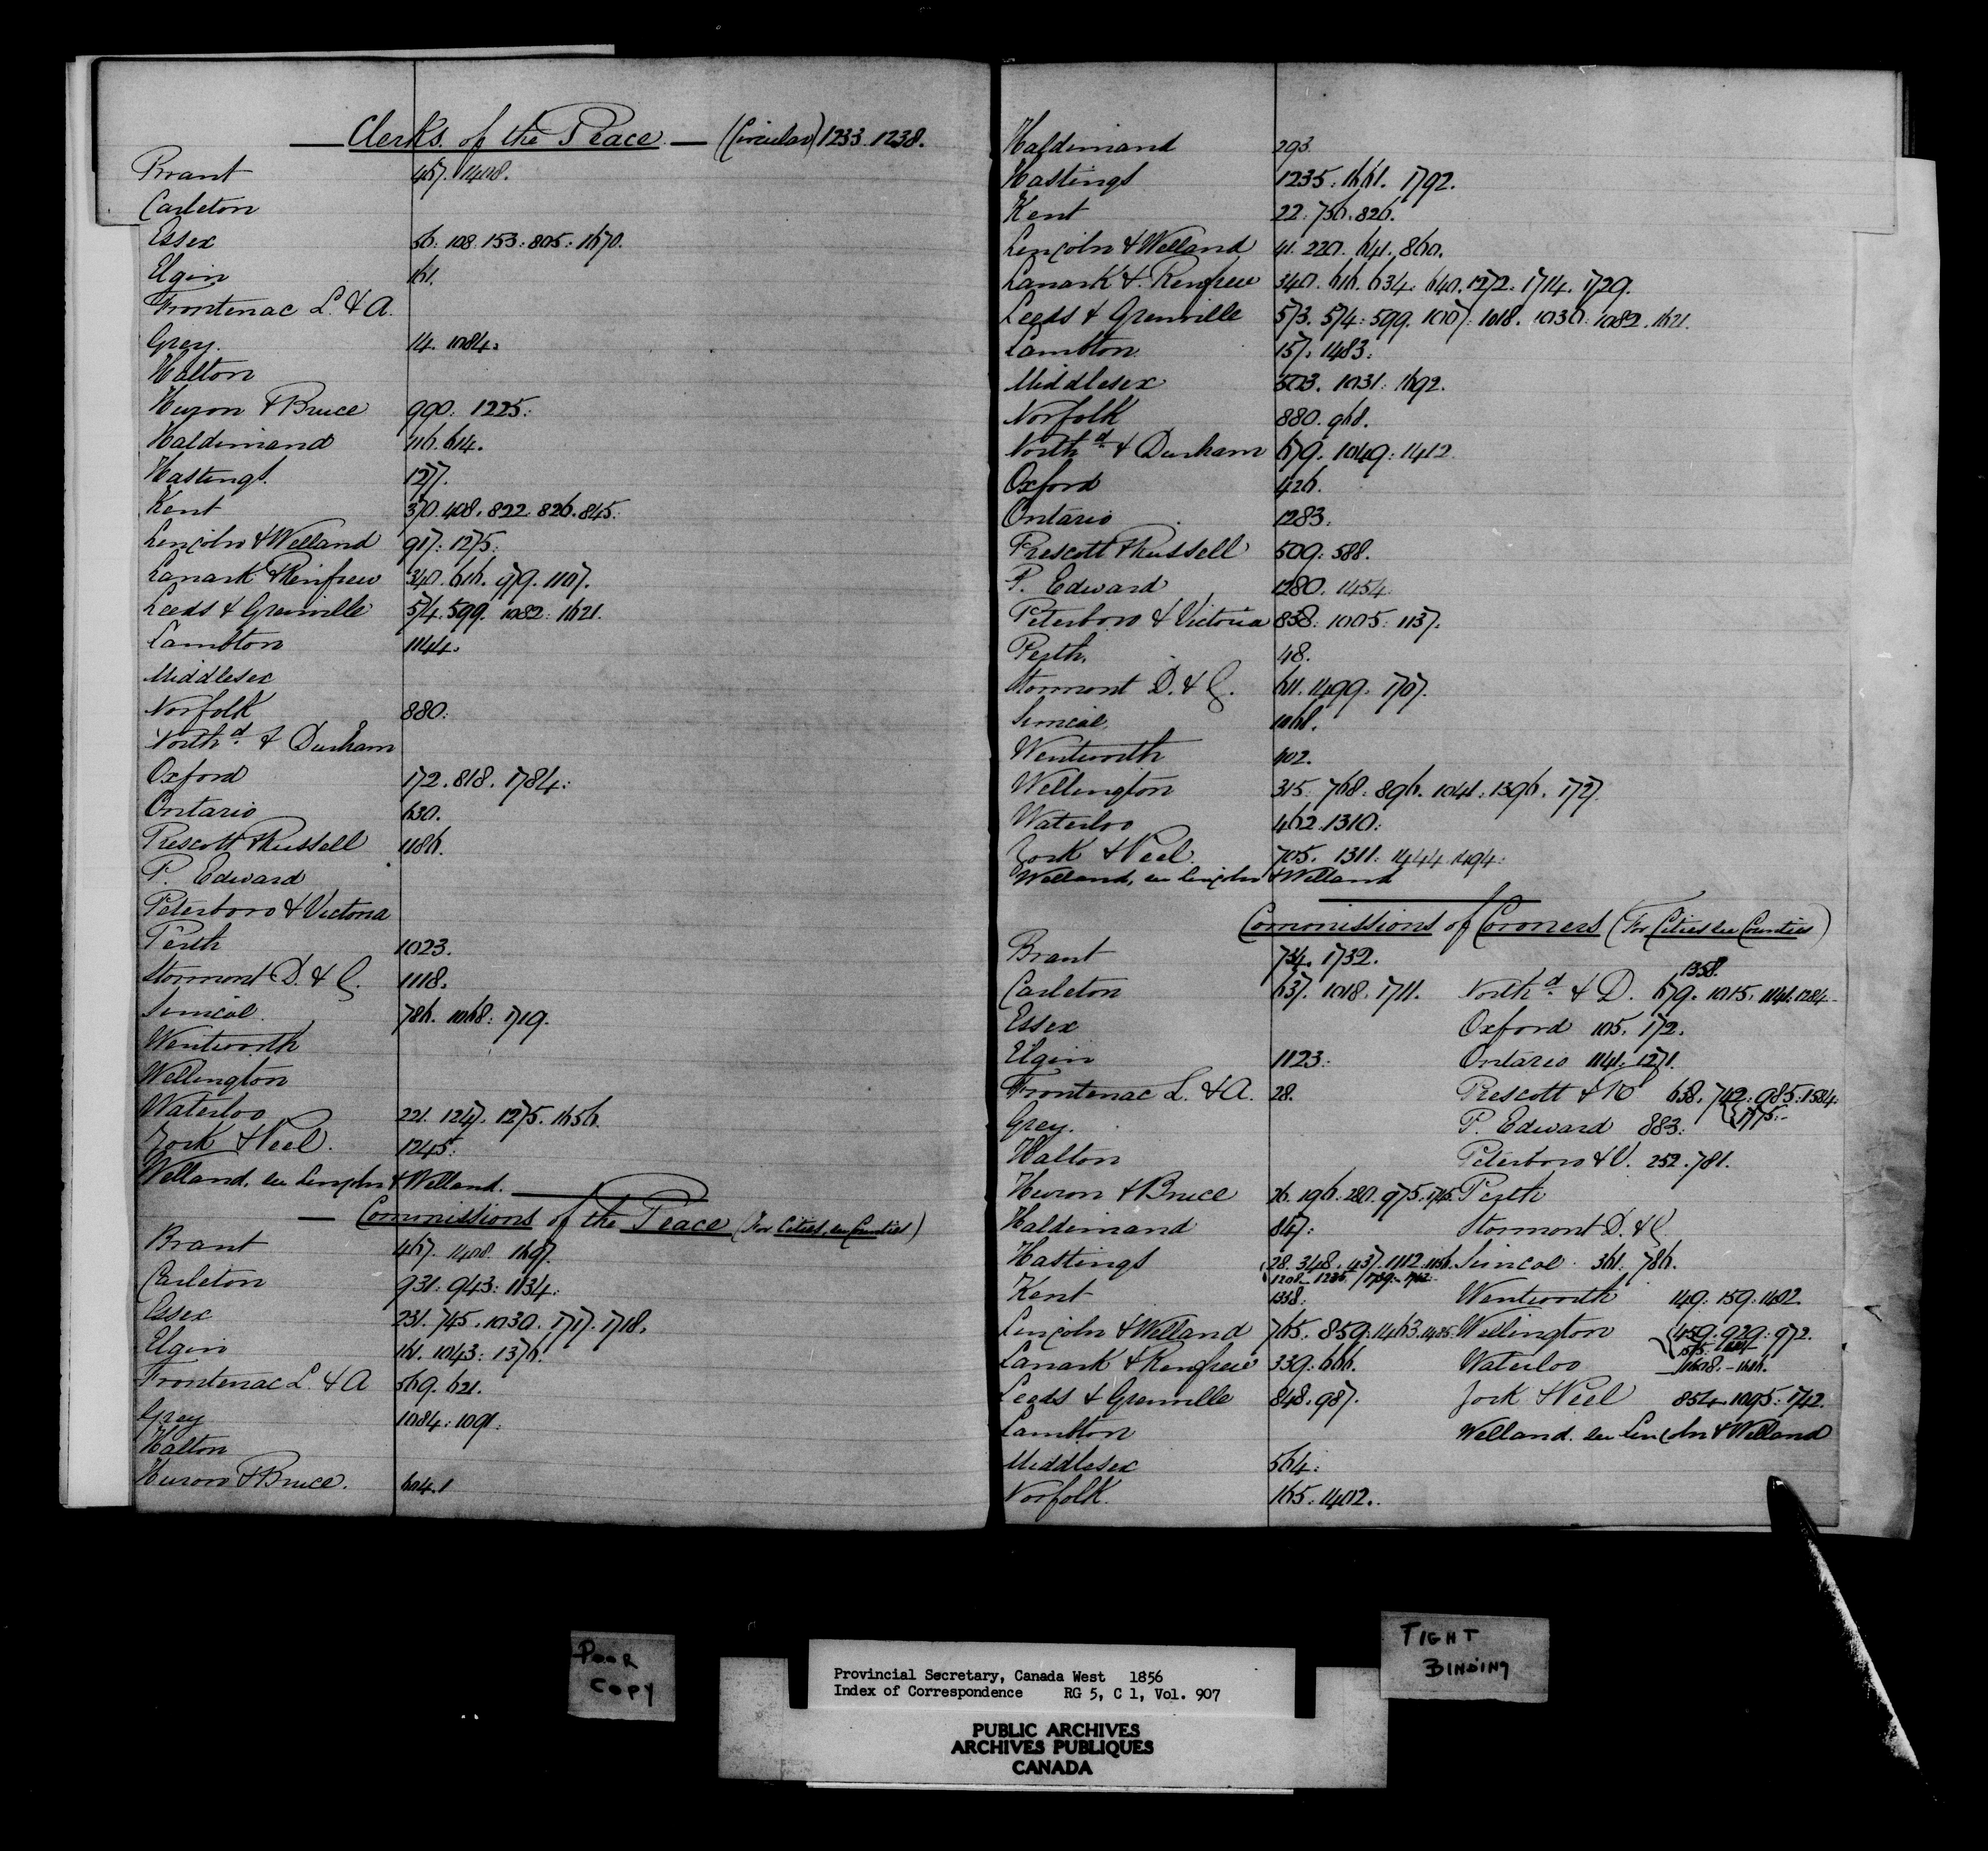 Clerks of the Peace — (Circular) 1233. 1238.
Brant 467. 1408.
Carleton
Essex 56. 108. 153: 805: 1670.
Elgin 161.
Frontenac L. & A.
Grey. 14. 1084.
Halton
Huron & Bruce 990: 1225:
Haldimand 116. 614.
Hastings. 1277.
Kent 370. 408. 822. 826. 845.
Lincoln & Welland 917: 1275.
Lanark & Renfrew 340. 616. 979. 1107.
Leeds & Grenville 574. 599. 1082: 1621.
Lambton 1144.
Middlesex
Norfolk 880:
North'd. & Durham
Oxford 172. 818. 1784:
Ontario 630.
Prescott & Russell 1186.
P. Edward
Peterboro & Victoria
Perth 1023.
Stormont D. & G. 1118.
Simcoe. 786. 1068: 1719.
Wentworth
Wellington
Waterloo 221. 1247. 1275. 1656.
York & Peel. 1245:
Welland, see Lincoln & Welland.
— Commissions of the Peace (For Cities, see Counties)
Brant 467. 1408. 1697.
Carleton 931. 943: 1134:
Essex 231. 745. 1030. 1717. 1718.
Elgin 161. 1043: 1376.
Frontenac L. & A 569. 621.
Grey 1084: 1091.
Halton
Huron & Bruce. 604.
Haldimand 293
Hastings 1235: 1661. 1792.
Kent 22: 756. 826.
Lincoln & Welland 41. 220. 641. 860.
Lanark & Renfrew 340. 616. 634. 640. 1272. 1714. 1729.
Leeds & Grenville 573. 574: 599. 1007: 1018. 1030: 1082. 1621.
Lambton 157. 1483:
Middlesex 503. 1031: 1692.
Norfolk 880. 968.
North'd. & Durham 679. 1049: 1412.
Oxford 426.
Ontario 1283.
Prescott & Russell 509: 588.
P. Edward 1280. 1454
Peterboro & Victoria 838: 1005: 1137.
Perth. 48.
Stormont D. & G. 611. 1499. 1707.
Simcoe 1068.
Wentworth 402.
Wellington 315. 768: 896. 1041: 1396. 1727.
Waterloo 462. 1310:
York & Peel. 705. 1311: 1444. 1494:
Welland, see Lincoln & Welland
Commissions of Coroners (For Cities see Counties)
Brant 734. 1732.
1358.
Carleton 637. 1018. 1711. North'd. & D. 679. 1015. 1141. 1284
Essex Oxford 105. 172.
Elgin 1123: Ontario 1141. 1271.
Frontenac L. & A. 28. Prescott & R 638. 742: 985: 1584:
Grey. P. Edward 883: 1775:
Halton Peterboro & V. 252. 781.
Huron & Bruce 26. 196. 280. 975. 1715. Perth
Haldimand 847: Stormont D. & G
Hastings 28. 348. 437. 1112. 1156. Simcoe 361. 786.
Kent 1338: Wentworth 149: 159: 1402.
Lincoln & Welland 765. 859: 1463. 1485. Wellington 459. 929: 972.
Lanark & Renfrew 339: 666. Waterloo 1608. - 1616.
Leeds & Grenville 848. 987. York & Peel 854. 1095: 1742.
Lambton Welland. see Lincoln & Welland
Middlesex 564:
Norfolk. 165. 1402.
POOR
COPY
TIGHT
BINDING
Provincial Secretary, Canada West 1856
Index of Correspondence RG 5, C 1, Vol. 907
PUBLIC ARCHIVES
ARCHIVES PUBLIQUES
CANADA